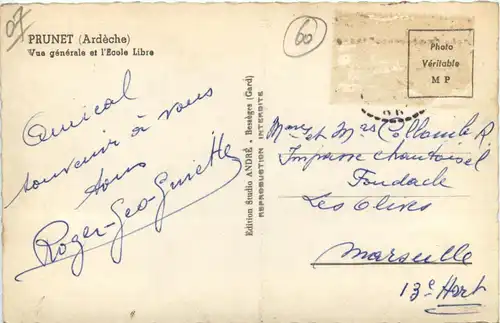 07
PRUNET (Ardèche)
Vue générale et l'Ecole Libre
60
Photo
Véritable
M P
Amical
souvenir à vous
tous
Roger-Geo-Ginette
Edition Studio ANDRÉ - Bessèges (Gard)
REPRODUCTION INTERDITE
et Mrs Collomb R.
Impasse Chantoisel
Les Olives
Marseille
13e Hart